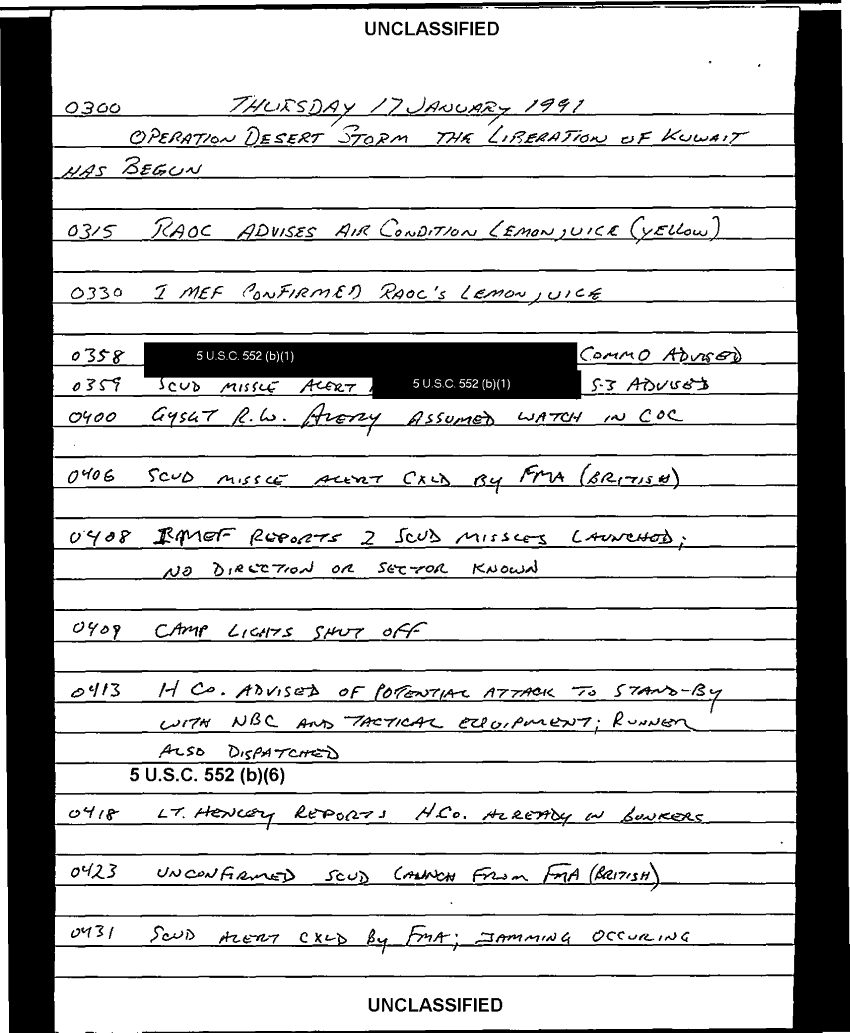 UNCLASSIFIED
0300 THURSDAY 17 JANUARY 1991
OPERATION DESERT STORM THE LIBERATION OF KUWAIT
HAS BEGUN
0315 RAOC ADVISES AIR CONDITION LEMON JUICE (YELLOW)
0330 I MEF CONFIRMED RAOC'S LEMON JUICE
0358 5 U.S.C. 552 (b)(1) COMMO ADVISED
0359 SCUD MISSLE ALERT 5 U.S.C. 552 (b)(1) S-3 ADVISED
0400 GYSGT R.W. AVERY ASSUMED WATCH IN COC
0406 SCUD MISSLE ALERT CXLD BY FMA (BRITISH)
0408 IMEF REPORTS 2 SCUD MISSLES LAUNCHED;
NO DIRECTION OR SECTOR KNOWN
0409 CAMP LIGHTS SHUT OFF
0413 H CO. ADVISED OF POTENTIAL ATTACK TO STAND-BY
WITH NBC AND TACTICAL EQUIPMENT; RUNNER
ALSO DISPATCHED
5 U.S.C. 552 (b)(6)
0418 LT. HENLEY REPORTS H.CO. ALREADY IN BUNKERS
0423 UNCONFIRMED SCUD LAUNCH FROM FMA (BRITISH)
0431 SCUD ALERT CXLD BY FMA; JAMMING OCCURING
UNCLASSIFIED